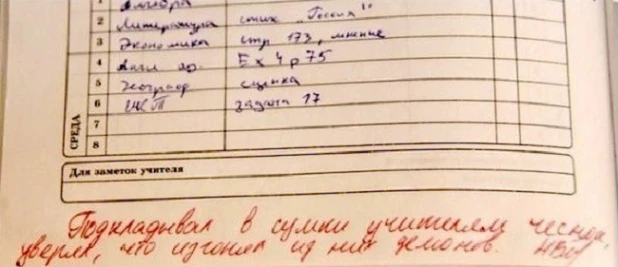 1 Алгебра
2 Литература стих „Россия"
3 Экономика стр 173, мнение
4 Англ яз. Ex 4 p 75
5 географ сценка
6 задача 17
7
8
СРЕДА
Для заметок учителя
Подкладывал в сумки учителям чеснок,
уверял, что изгоняет из них демонов.